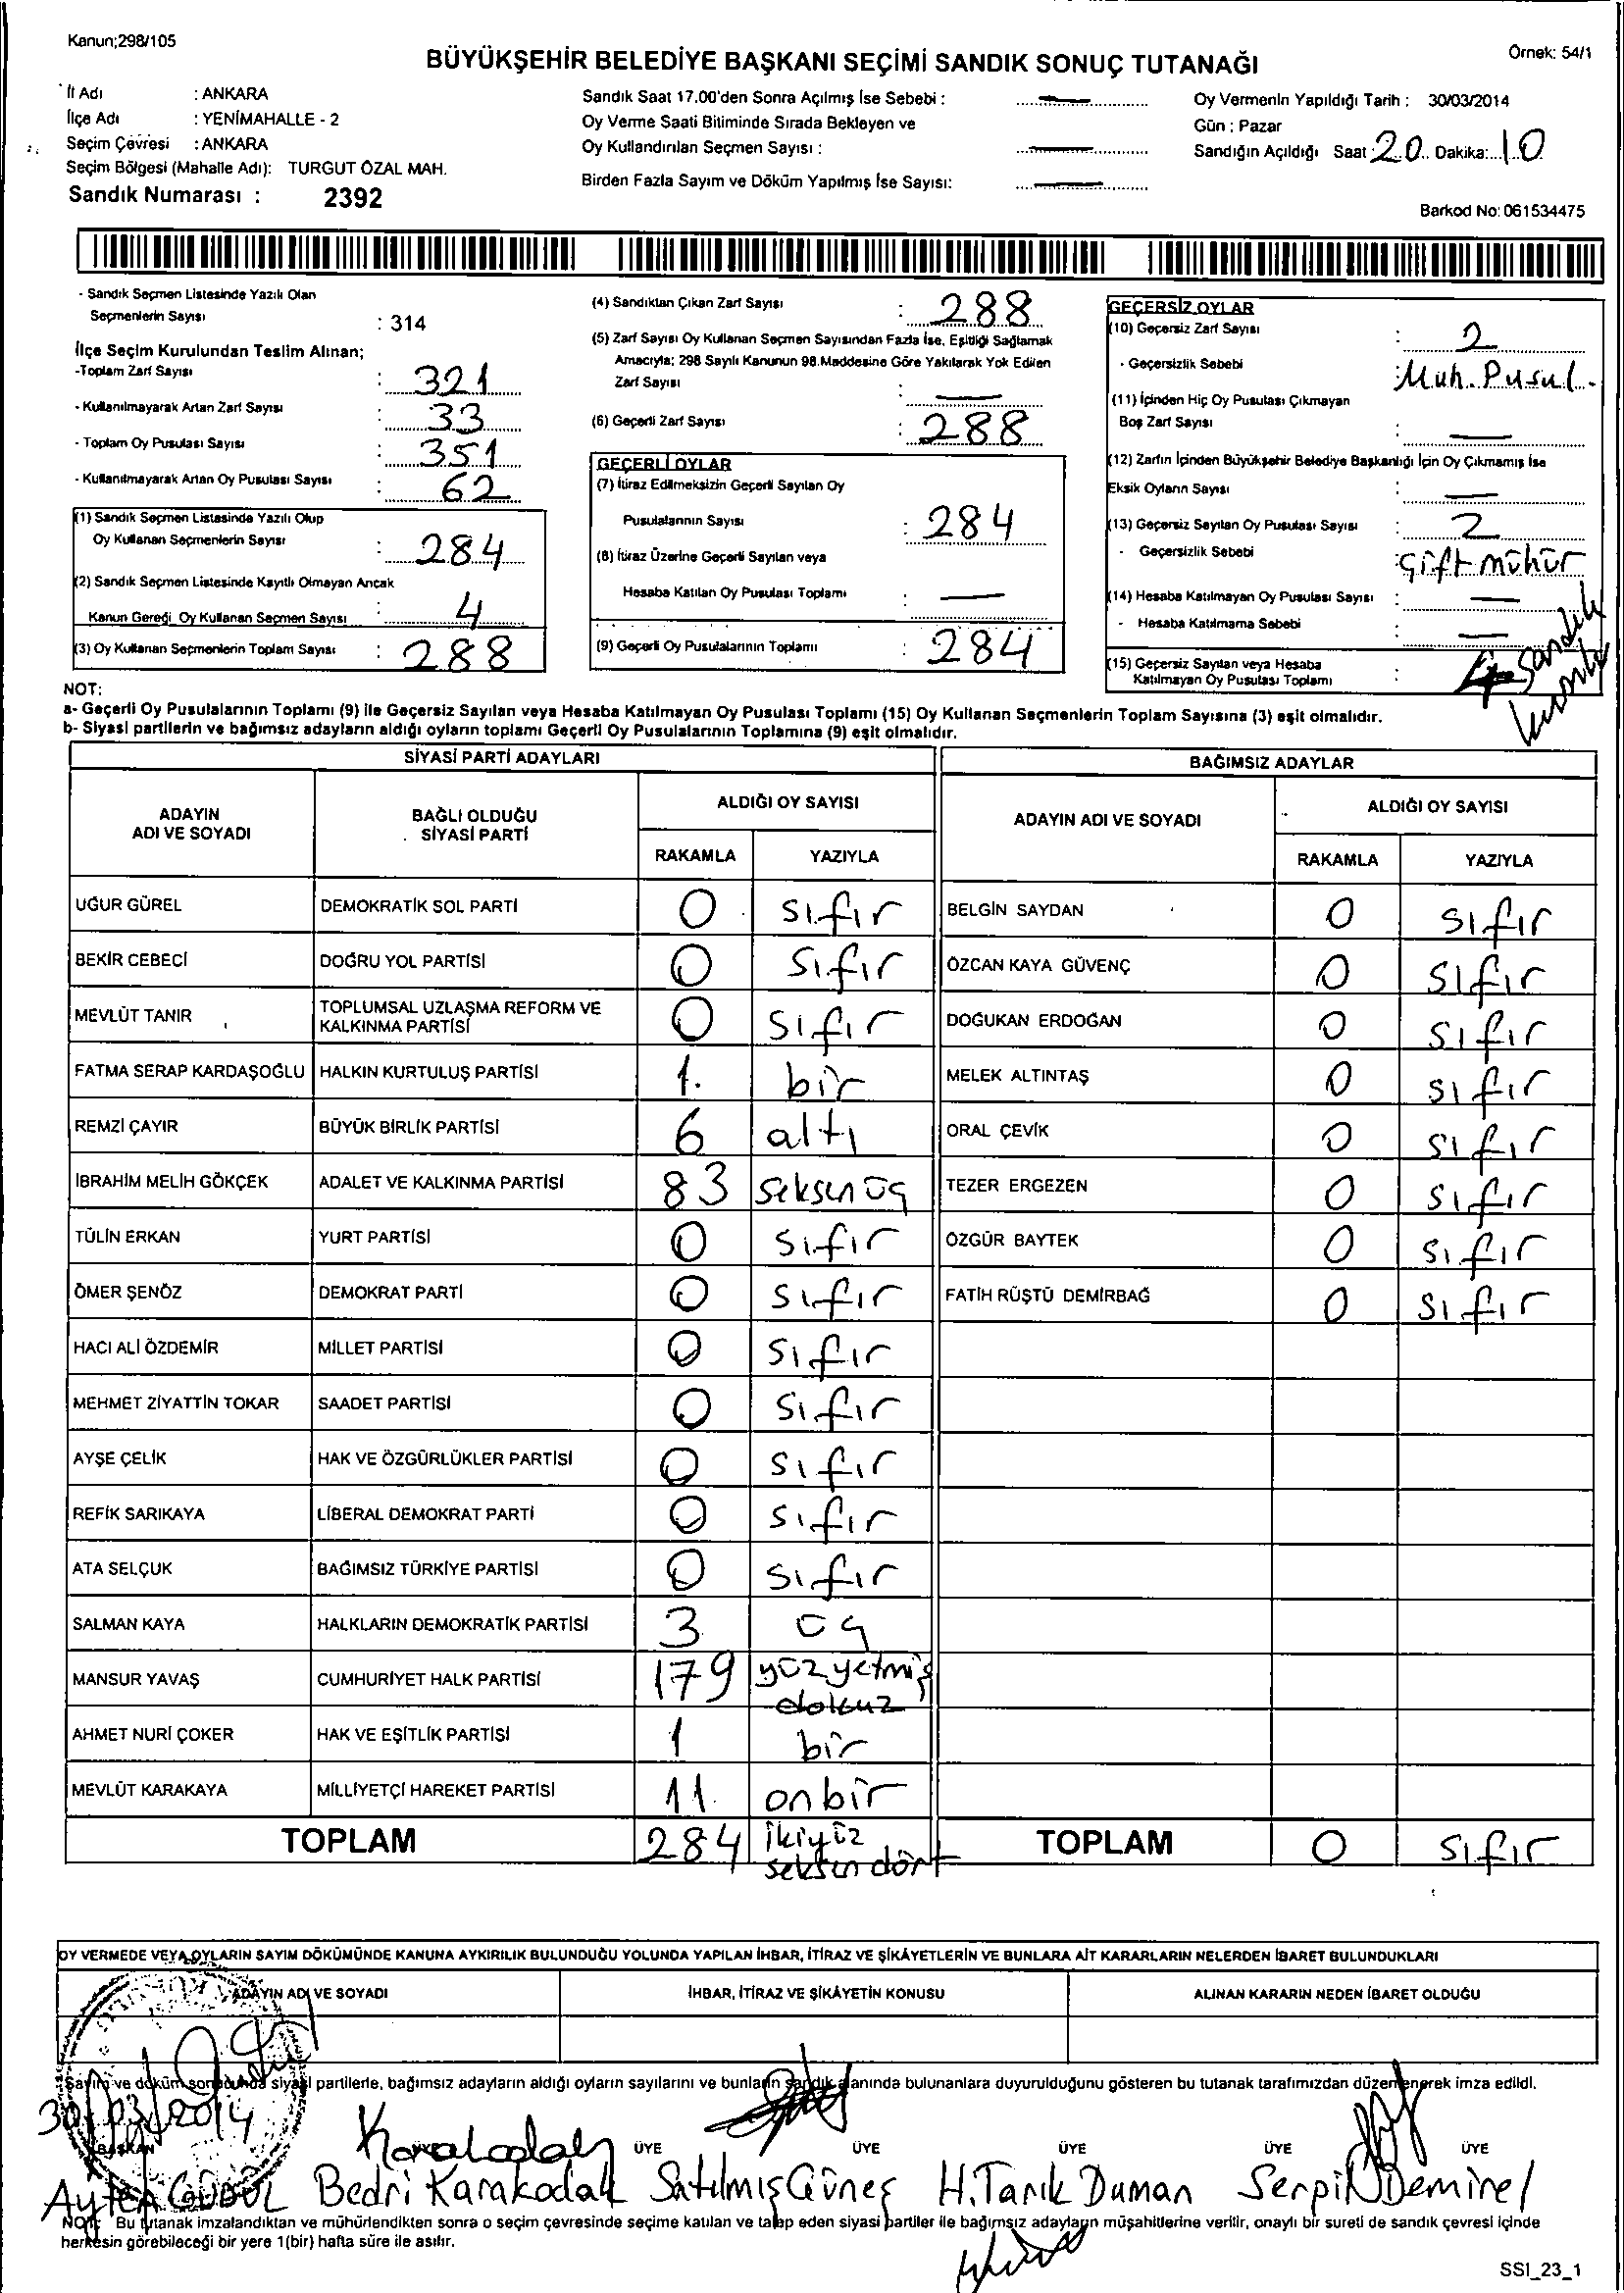 Kanun;298/105
Örnek: 54/1
BÜYÜKŞEHİR BELEDİYE BAŞKANI SEÇİMİ SANDIK SONUÇ TUTANAĞI
İl Adı : ANKARA
İlçe Adı : YENİMAHALLE - 2
Seçim Çevresi : ANKARA
Seçim Bölgesi (Mahalle Adı): TURGUT ÖZAL MAH.
Sandık Numarası : 2392
Sandık Saat 17.00'den Sonra Açılmış İse Sebebi : —
Oy Verme Saati Bitiminde Sırada Bekleyen ve
Oy Kullandırılan Seçmen Sayısı : —
Birden Fazla Sayım ve Döküm Yapılmış İse Sayısı: —
Oy Vermenin Yapıldığı Tarih : 30/03/2014
Gün : Pazar
Sandığın Açıldığı Saat : 20 Dakika: 10
Barkod No: 061534475
- Sandık Seçmen Listesinde Yazılı Olan
Seçmenlerin Sayısı : 314
İlçe Seçim Kurulundan Teslim Alınan;
-Toplam Zarf Sayısı : 321
- Kullanılmayarak Artan Zarf Sayısı : 33
- Toplam Oy Pusulası Sayısı : 351
- Kullanılmayarak Artan Oy Pusulası Sayısı : 62
(1) Sandık Seçmen Listesinde Yazılı Olup
Oy Kullanan Seçmenlerin Sayısı : 284
(2) Sandık Seçmen Listesinde Kayıtlı Olmayan Ancak
Kanun Gereği Oy Kullanan Seçmen Sayısı : 4
(3) Oy Kullanan Seçmenlerin Toplam Sayısı : 288
(4) Sandıktan Çıkan Zarf Sayısı : 288
(5) Zarf Sayısı Oy Kullanan Seçmen Sayısından Fazla İse, Eşitliği Sağlamak
Amacıyla; 298 Sayılı Kanunun 98.Maddesine Göre Yakılarak Yok Edilen
Zarf Sayısı : —
(6) Geçerli Zarf Sayısı : 288
GEÇERLİ OYLAR
(7) İtiraz Edilmeksizin Geçerli Sayılan Oy
Pusulalarının Sayısı : 284
(8) İtiraz Üzerine Geçerli Sayılan veya
Hesaba Katılan Oy Pusulası Toplamı : —
(9) Geçerli Oy Pusulalarının Toplamı : 284
GEÇERSİZ OYLAR
(10) Geçersiz Zarf Sayısı : 2
- Geçersizlik Sebebi : Muh. Pusul.
(11) İçinden Hiç Oy Pusulası Çıkmayan
Boş Zarf Sayısı : —
(12) Zarfın İçinden Büyükşehir Belediye Başkanlığı İçin Oy Çıkmamış İse
Eksik Oyların Sayısı : —
(13) Geçersiz Sayılan Oy Pusulası Sayısı : 2
- Geçersizlik Sebebi : Çift mühür
(14) Hesaba Katılmayan Oy Pusulası Sayısı : —
- Hesaba Katılmama Sebebi : —
(15) Geçersiz Sayılan veya Hesaba
Katılmayan Oy Pusulası Toplamı : 4
Sandık
NOT:
a- Geçerli Oy Pusulalarının Toplamı (9) ile Geçersiz Sayılan veya Hesaba Katılmayan Oy Pusulası Toplamı (15) Oy Kullanan Seçmenlerin Toplam Sayısına (3) eşit olmalıdır.
b- Siyasi partilerin ve bağımsız adayların aldığı oyların toplamı Geçerli Oy Pusulalarının Toplamına (9) eşit olmalıdır.
SİYASİ PARTİ ADAYLARI
ADAYIN ADI VE SOYADI BAĞLI OLDUĞU SİYASİ PARTİ ALDIĞI OY SAYISI
RAKAMLA YAZIYLA
UĞUR GÜREL DEMOKRATİK SOL PARTİ 0 sıfır
BEKİR CEBECİ DOĞRU YOL PARTİSİ 0 sıfır
MEVLÜT TANIR TOPLUMSAL UZLAŞMA REFORM VE KALKINMA PARTİSİ 0 sıfır
FATMA SERAP KARDAŞOĞLU HALKIN KURTULUŞ PARTİSİ 1. bir
REMZİ ÇAYIR BÜYÜK BİRLİK PARTİSİ 6 altı
İBRAHİM MELİH GÖKÇEK ADALET VE KALKINMA PARTİSİ 83 seksen üç
TÜLİN ERKAN YURT PARTİSİ 0 sıfır
ÖMER ŞENÖZ DEMOKRAT PARTİ 0 sıfır
HACI ALİ ÖZDEMİR MİLLET PARTİSİ 0 sıfır
MEHMET ZİYATTİN TOKAR SAADET PARTİSİ 0 sıfır
AYŞE ÇELİK HAK VE ÖZGÜRLÜKLER PARTİSİ 0 sıfır
REFİK SARIKAYA LİBERAL DEMOKRAT PARTİ 0 sıfır
ATA SELÇUK BAĞIMSIZ TÜRKİYE PARTİSİ 0 sıfır
SALMAN KAYA HALKLARIN DEMOKRATİK PARTİSİ 3 üç
MANSUR YAVAŞ CUMHURİYET HALK PARTİSİ 179 yüz yetmiş dokuz
AHMET NURİ ÇOKER HAK VE EŞİTLİK PARTİSİ 1 bir
MEVLÜT KARAKAYA MİLLİYETÇİ HAREKET PARTİSİ 11 onbir
TOPLAM 284 ikiyüz seksen dört
BAĞIMSIZ ADAYLAR
ADAYIN ADI VE SOYADI ALDIĞI OY SAYISI
RAKAMLA YAZIYLA
BELGİN SAYDAN 0 sıfır
ÖZCAN KAYA GÜVENÇ 0 sıfır
DOĞUKAN ERDOĞAN 0 sıfır
MELEK ALTINTAŞ 0 sıfır
ORAL ÇEVİK 0 sıfır
TEZER ERGEZEN 0 sıfır
ÖZGÜR BAYTEK 0 sıfır
FATİH RÜŞTÜ DEMİRBAĞ 0 sıfır
TOPLAM 0 sıfır
OY VERMEDE VEYA OYLARIN SAYIM DÖKÜMÜNDE KANUNA AYKIRILIK BULUNDUĞU YOLUNDA YAPILAN İHBAR, İTİRAZ VE ŞİKÂYETLERİN VE BUNLARA AİT KARARLARIN NELERDEN İBARET BULUNDUKLARI
ADAYIN ADI VE SOYADI İHBAR, İTİRAZ VE ŞİKÂYETİN KONUSU ALINAN KARARIN NEDEN İBARET OLDUĞU
Sayım ve döküm sonucunda siyasi partilerle, bağımsız adayların aldığı oyların sayılarını ve bunların sandık alanında bulunanlara duyurulduğunu gösteren bu tutanak tarafımızdan düzenlenerek imza edildi.
30/03/2014
Karakodak
BAŞKAN ÜYE ÜYE ÜYE ÜYE ÜYE
Ayten GÜDÜL Bedri Karakodak Satılmış Güneş H.Tarık Duman Serpil Demirel
NOT: Bu tutanak imzalandıktan ve mühürlendikten sonra o seçim çevresinde seçime katılan ve talep eden siyasi partiler ile bağımsız adayların müşahitlerine verilir, onaylı bir sureti de sandık çevresi içinde
herkesin görebileceği bir yere 1(bir) hafta süre ile asılır.
SSI_23_1